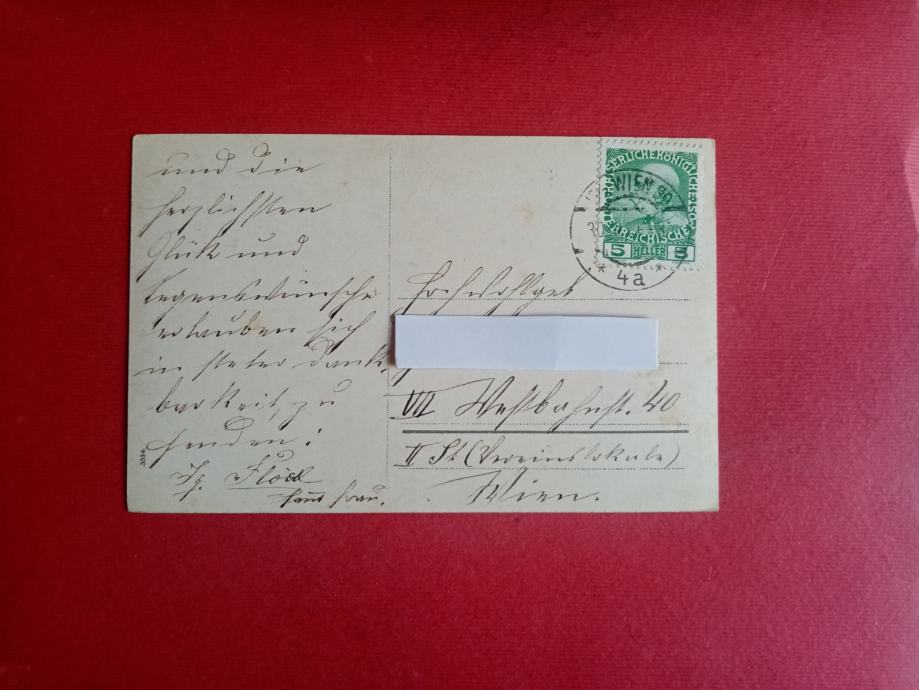 und die
herzlichsten
Glük und
Segenswünsche
erlauben sich
in steter Dank,
barkeit, zu
senden:
Ig. Flödl
samt Frau.
3354
KAISERLICHE KÖNIGLICHE
ÖSTERREICHISCHE
5 HELLER 5
WIEN
30
* 4a *
Hochwohlgeb
VII Westbahnst. 40
II St (Vereinslokale)
Wien.